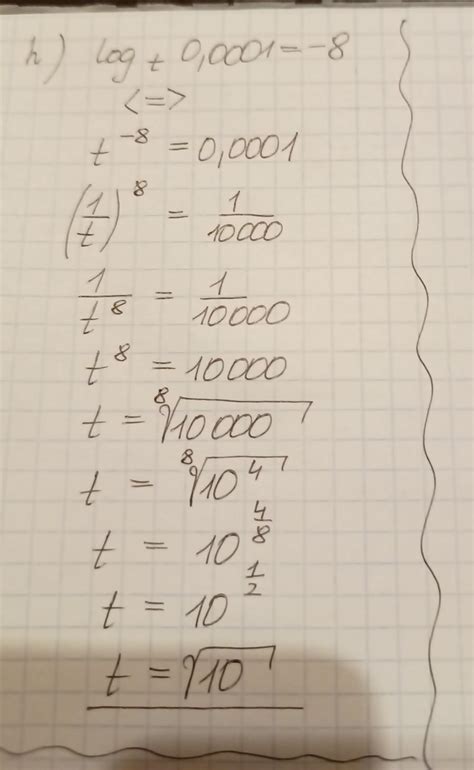 h) log_t 0,0001 = -8
<=>
t^-8 = 0,0001
(1/t)^8 = 1/10000
1/t^8 = 1/10000
t^8 = 10000
t = ⁸√10000
t = ⁸√10^4
t = 10^4/8
t = 10^1/2
t = √10